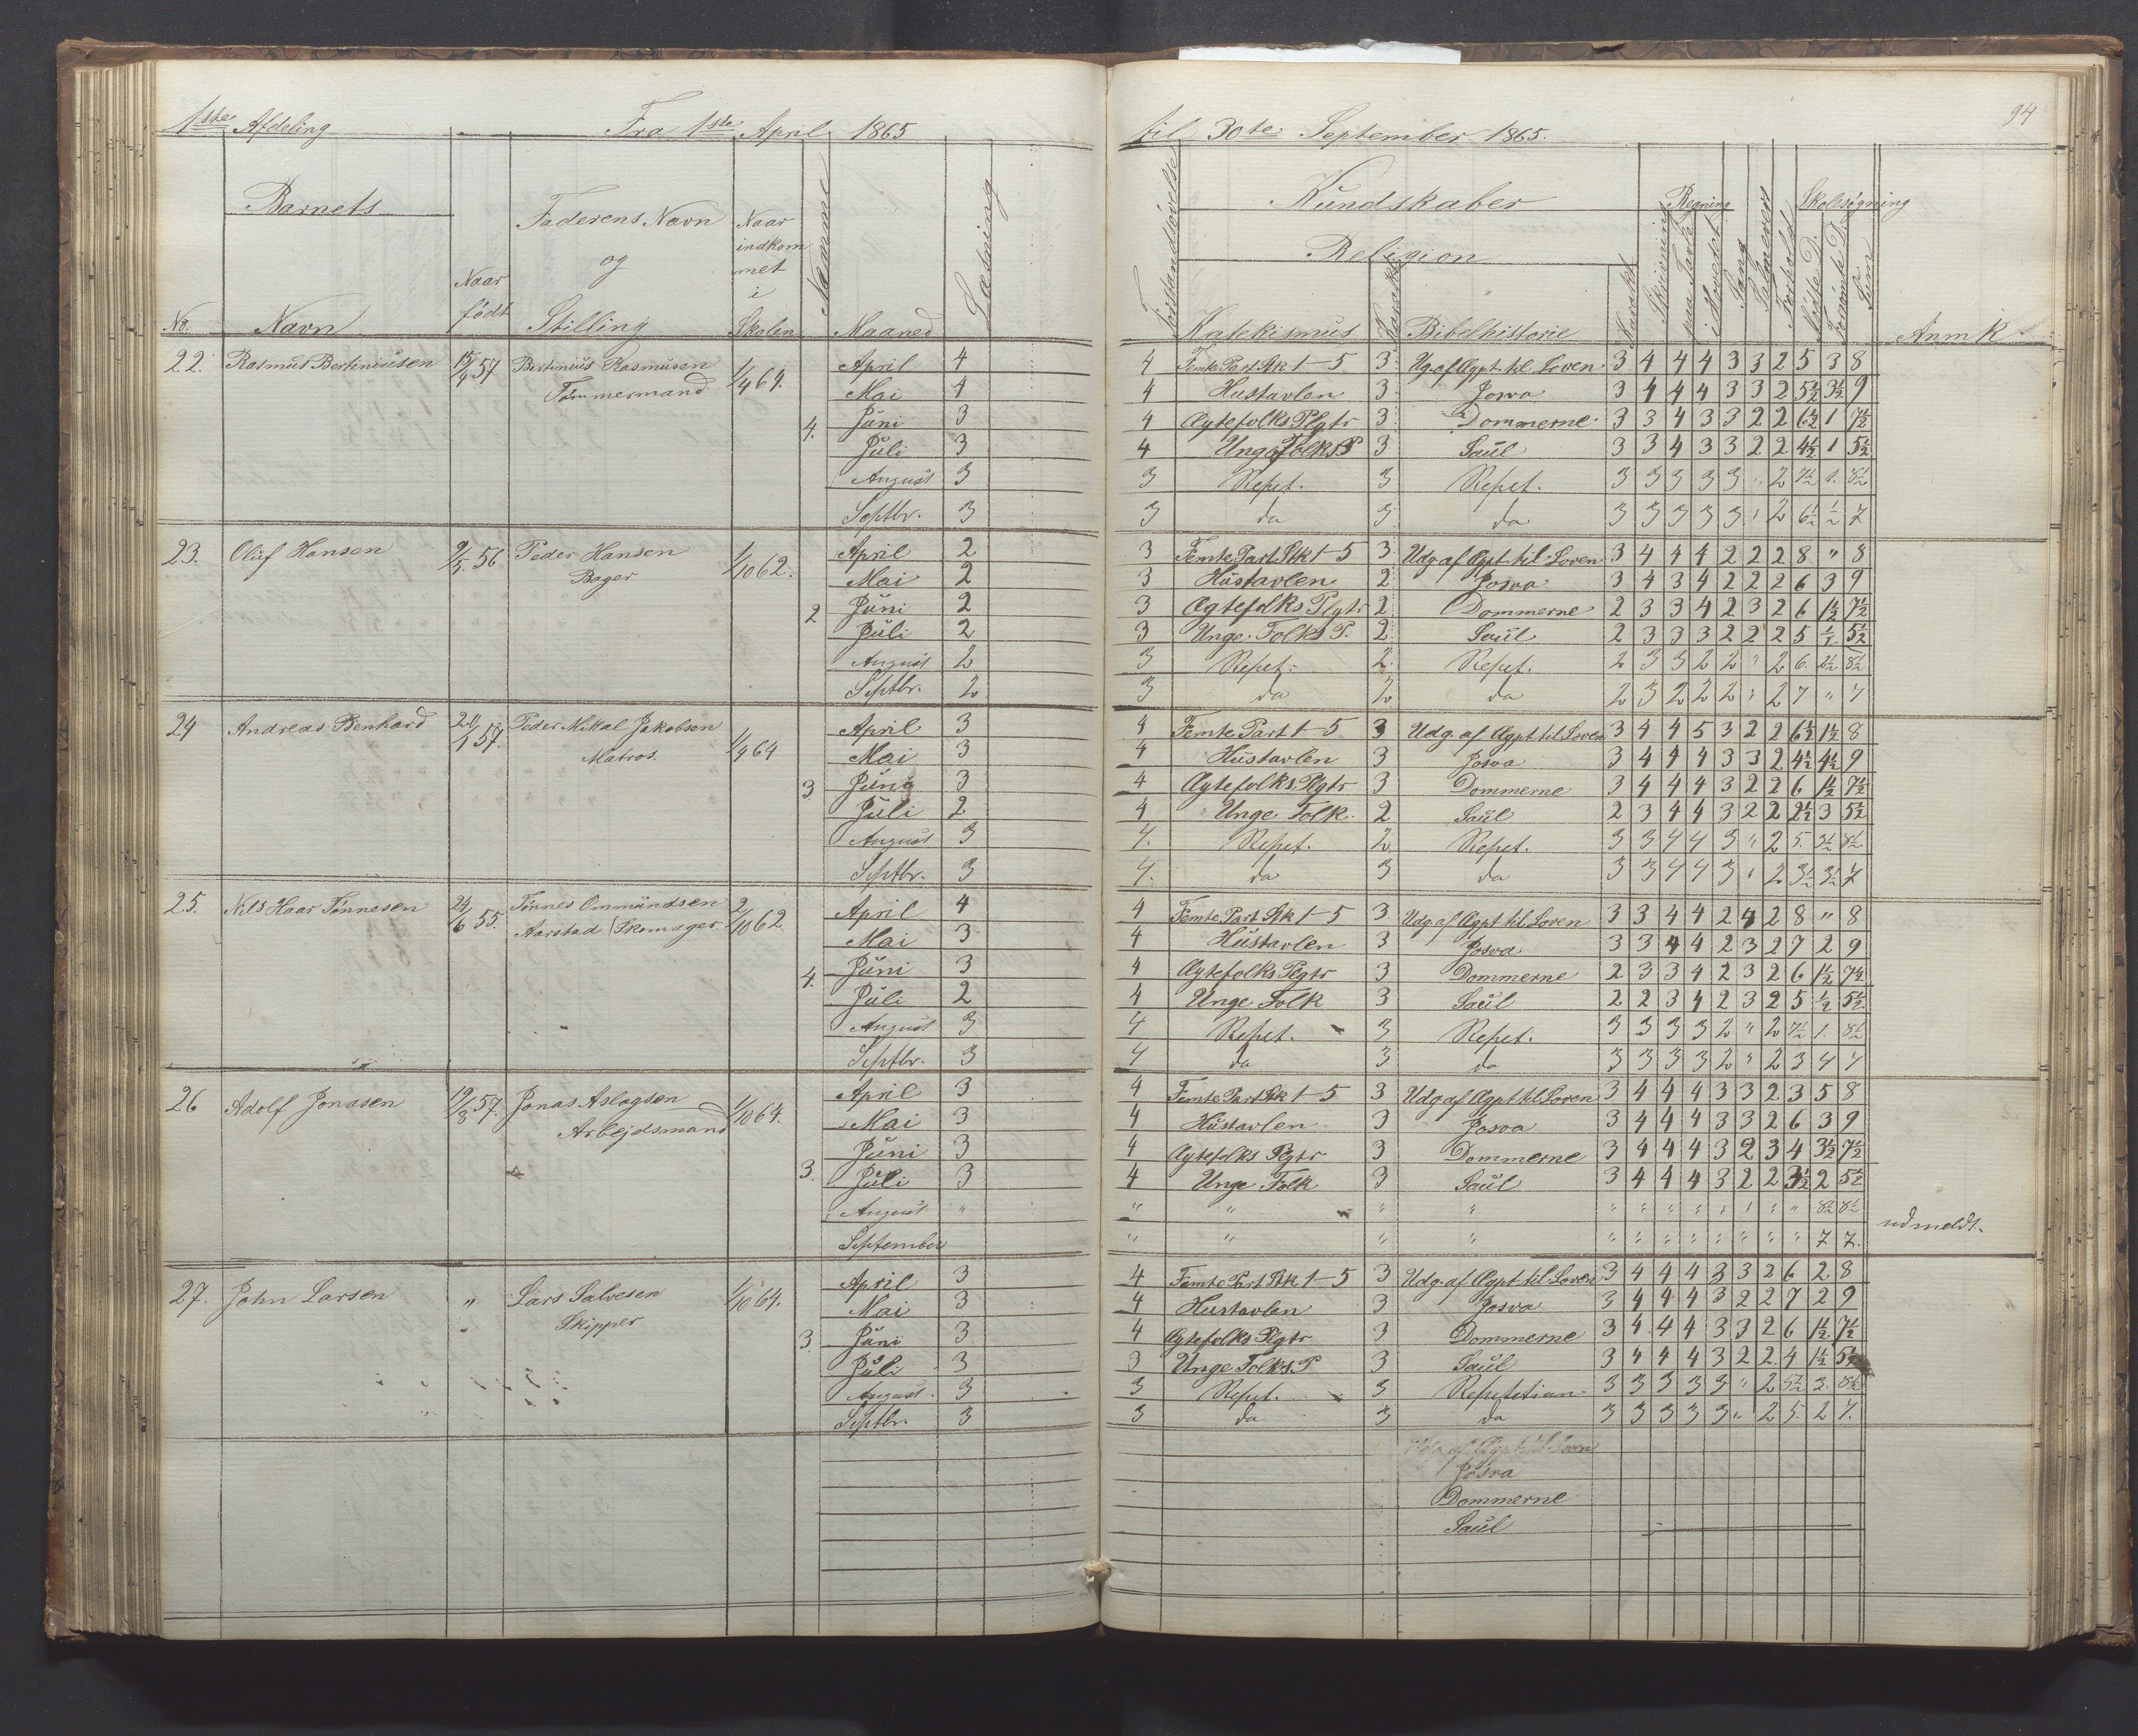 1ste Afdeling Fra 1ste April 1865
Barnets
No. Navn Naar født Faderens Navn og Stilling Naar indkommet i Skolen Maaned Læsning
22. Rasmus Bertiniusen 15/4 57 Bertinius Rasmusen 1/4 64. April 4
Tømmermand Mai 4
4. Juni 3
Juli 3
August 3
Septbr. 3
23. Oluf Hansen 9/5. 56 Peder Hansen 1/10 62. April 2
Bager Mai 2
2 Juni 2
Juli 2
August 2
Septbr. 2
24 Andreas Benhard 20/1 57. Peder Mikal Jakobsen 1/4 64 April 3
Matros. Mai 3
3 Juni 3
Juli 2
August 3
Septbr. 3
25. Nils Haar Tønnesen 24/6 55. Tønnes Ommundsen 2/10 62 April 4
Aarstad / Skomager. Mai 3
4. Juni 3
Juli 2
August 3
Septbr. 3
26 Adolf Jonasen 19/8 57. Jonas Aslagsen 1/10 64. April 3
Arbejdsmand Mai 3
3. Juni 3
Juli 3
August "
September
27. John Larsen " Lars Salvesen 1/10 64. April 3
Skipper Mai 3
3. Juni 3
Juli 3
August 3
Septbr. 3
94
til 30te September 1865.
Forstandsøvelse Kundskaber Regning Skolesøgning
Religion
Katekismus Karakt Bibelhistorie Karakt Skrivning paa Tavle i Hovedet Sang Forhold Sum Anmk
4 Femte Part Stk 1-5 3 Ug. af Ægpt. til Loven 3 4 4 4 3 3 2 5 3 8
4 Hustavlen 3 Josva 3 4 4 4 3 3 2 5½ 3½ 9
4 Ægtefolks Plgtr 3 Dommerne 3 3 4 3 3 2 2 6½ 1 7½
4 Unge Folks P 3 Saul 3 3 4 3 3 2 2 4½ 1 5½
3 Repet. 3 Repet. 3 3 3 3 3 " 2 7½ 1. 8½
3 da 3 da 3 3 3 3 3 " 2 6½ ½ 7
3 Femte Part Stk 1-5 3 Udg. af Ægpt. til Loven 3 4 4 4 2 2 2 8 " 8
3 Hustavlen 2 Josva 3 4 3 4 2 2 2 6 3 9
3 Ægtefolks Plgtr 2 Dommerne 2 3 3 4 2 3 2 6 1½ 7½
3 Unge Folks P. 2 Saul 2 3 3 3 2 2 2 5 ½ 5½
3 Repet. 2. Repet. 2 3 3 2 2 " 2 6. 2½ 8½
3 da 2 da 2 3 2 2 2 " 2 7 " 7
4 Femte Part 1-5 3 Udg. af Ægpt til Loven 3 4 4 5 3 2 2 6½ 1½ 8
4 Hustavlen 3 Josva 3 4 4 4 3 3 2 4½ 4½ 9
4 Ægtefolks Plgtr 3 Dommerne 3 4 4 4 3 2 2 6 1½ 7½
4 Unge Folk. 2 Saul 2 3 4 4 3 2 2 2½ 3 5½
4. Repet. 2 Repet. 3 3 4 4 3 " 2 5. 3½ 8½
4. da 3 da 3 3 4 4 3 " 2 3½ 3½ 7
4 Femte Part Stk 1-5 3 Udg. af Ægpt til Loven 3 3 4 4 2 4 2 8 " 8
4 Hustavlen 3 Josva 3 3 4 4 2 3 2 7 2 9
4 Ægtefolks Plgtr 3 Dommerne 2 3 3 4 2 3 2 6 1½ 7½
4 Unge Folk 3 Saul 2 2 3 4 2 3 2 5 ½ 5½
4 Repet. 3 Repet. 3 3 3 3 2 " 2 7½ 1. 8½
4 da 3 da 3 3 3 3 2 " 2 3 4 7
4 Femte Part Stk 1-5 3 Udg af Ægpt til Loven 3 4 4 4 3 3 2 3 5 8
4 Hustavlen 3 Josva 3 4 4 4 3 3 2 6 3 9
4 Ægtefolks Plgtr 3 Dommerne 3 4 4 4 3 2 3 4 3½ 7½
4 Unge Folk 3 Saul 3 4 4 4 3 2 2 3½ 2 5½
" " " " " " " " " " " " 8½ 8½
" " " " " " " " " " " " 7 7. udmeldt.
4 Femte Part Stk 1-5 3 Udg. af Ægpt. til Loven 3 4 4 4 3 3 2 6 2 8
4 Hustavlen 3 Josva 3 4 4 4 3 2 2 7 2 9
4 Ægtefolks Plgtr 3 Dommerne 3 4 4 4 3 3 2 6 1½ 7½
3 Unge Folks P 3 Saul 3 4 4 4 3 2 2 4 1½ 5½
3 Repet. 3 Repetetian 3 3 3 3 3 " 2 5½ 3. 8½
3 da 3 da 3 3 3 3 3 " 2 5. 2 7.
Udg. af Ægpt til Loven
Josva
Dommerne
Saul